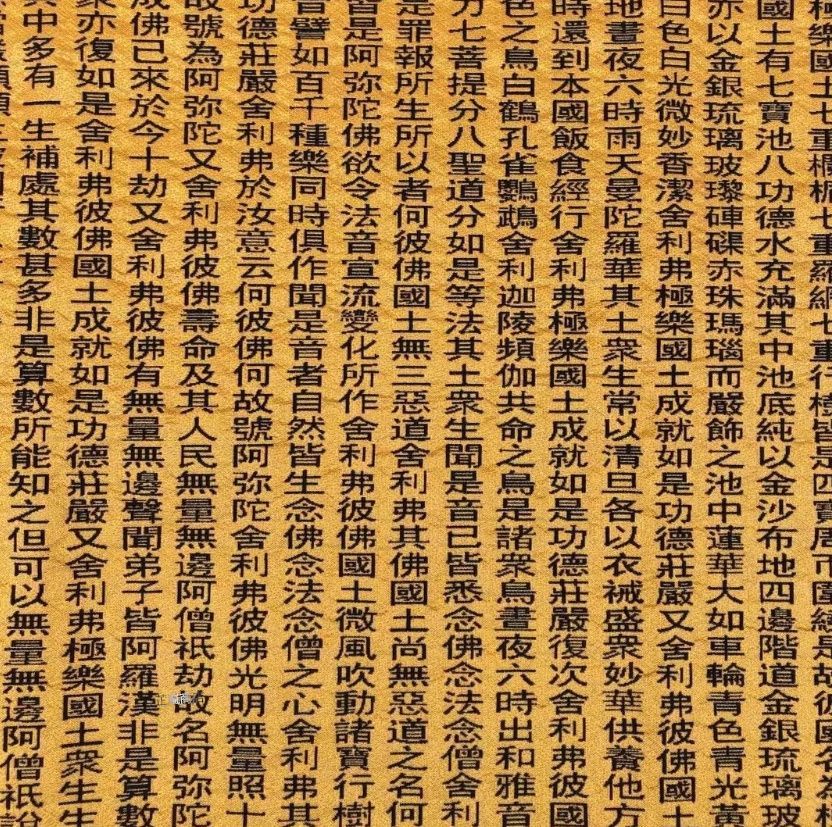 極樂國土七重欄楯七重羅網七重行樹皆是四寶周帀圍繞是故彼國名為極
國土有七寶池八功德水充滿其中池底純以金沙布地四邊階道金銀琉璃玻
亦以金銀琉璃玻瓈硨磲赤珠瑪瑙而嚴飾之池中蓮華大如車輪青色青光黃
白色白光微妙香潔舍利弗極樂國土成就如是功德莊嚴又舍利弗彼佛國土
地晝夜六時雨天曼陀羅華其土眾生常以清旦各以衣裓盛眾妙華供養他方
時還到本國飯食經行舍利弗極樂國土成就如是功德莊嚴復次舍利弗彼國
色之鳥白鶴孔雀鸚鵡舍利迦陵頻伽共命之鳥是諸眾鳥晝夜六時出和雅音
力七菩提分八聖道分如是等法其土眾生聞是音已皆悉念佛念法念僧舍利
是罪報所生所以者何彼佛國土無三惡道舍利弗其佛國土尚無惡道之名何
皆是阿弥陀佛欲令法音宣流變化所作舍利弗彼佛國土微風吹動諸寶行樹
音譬如百千種樂同時俱作聞是音者自然皆生念佛念法念僧之心舍利弗其
功德莊嚴舍利弗於汝意云何彼佛何故號阿弥陀舍利弗彼佛光明無量照十
故號為阿弥陀又舍利弗彼佛壽命及其人民無量無邊阿僧祇劫故名阿弥陀
成佛已來於今十劫又舍利弗彼佛有無量無邊聲聞弟子皆阿羅漢非是算數
眾亦復如是舍利弗彼佛國土成就如是功德莊嚴又舍利弗極樂國土眾生生
其中多有一生補處其數甚多非是算數所能知之但可以無量無邊阿僧祇說